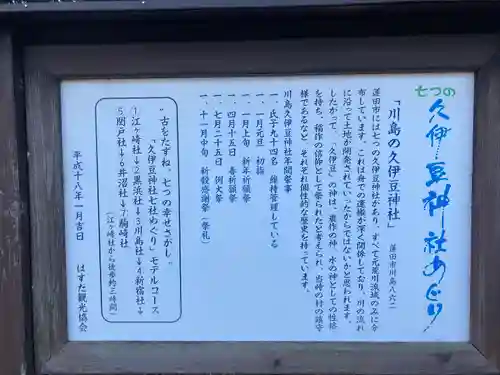 七つの
久伊豆神社めぐり
「川島の久伊豆神社」
蓮田市川島八六二
蓮田市には七つの久伊豆神社があり、すべて元荒川流域のみに分
布しています。これは舟での運搬が深く関係しており、川の流れ
に沿って土地が開発されていったからではないかと思われます。
したがって、「久伊豆」の神は、農作の神、水の神としての性格
を持ち、稲作の信仰として祭られたと考えられ、当時の村の鎮守
様であるなど、それぞれ個性的な歴史を持っています。
川島久伊豆神社年間祭事
一、氏子九十四名 維持管理している
一、一月元旦 初詣
一、一月上旬 新年祈願祭
一、四月十五日 春祈願祭
一、七月二十五日 例大祭
一、十一月中旬 新穀感謝祭(祭礼)
"古をたずね、七つの幸せさがし"
「久伊豆神社七社めぐり」モデルコース
①江ヶ崎社→2黒浜社→3川島社→4新宿社→
⑤閏戸社→6井沼社→7駒崎社
(江ヶ崎社から徒歩約三時間)
平成十八年一月吉日
はすだ観光協会